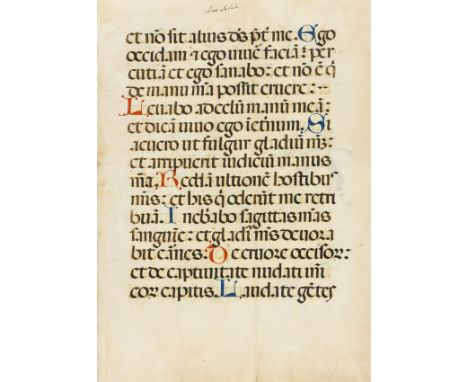 et nō sit alius ds p̄t me. Ego
occidam et ego vivē faciā: per
cutiā et ego sanabo: et nō ē q̄
de manu m̄a possit eruere:
Levabo ad celū manū meā:
et dicā vivo ego ī et̄num. Si
acuero ut fulgur gladiū m̄:
et arripuerit iudiciū manus
m̄a. Reddā ultionē hostibus
m̄is: et his q̄ oderūt me retri
buā. Inebriabo sagittas m̄as
sanguīe: et gladi' m̄s devora
bit carnes. De cruore occisor:
et de captivitate nudati īmi
cor capitis. Laudate gētes